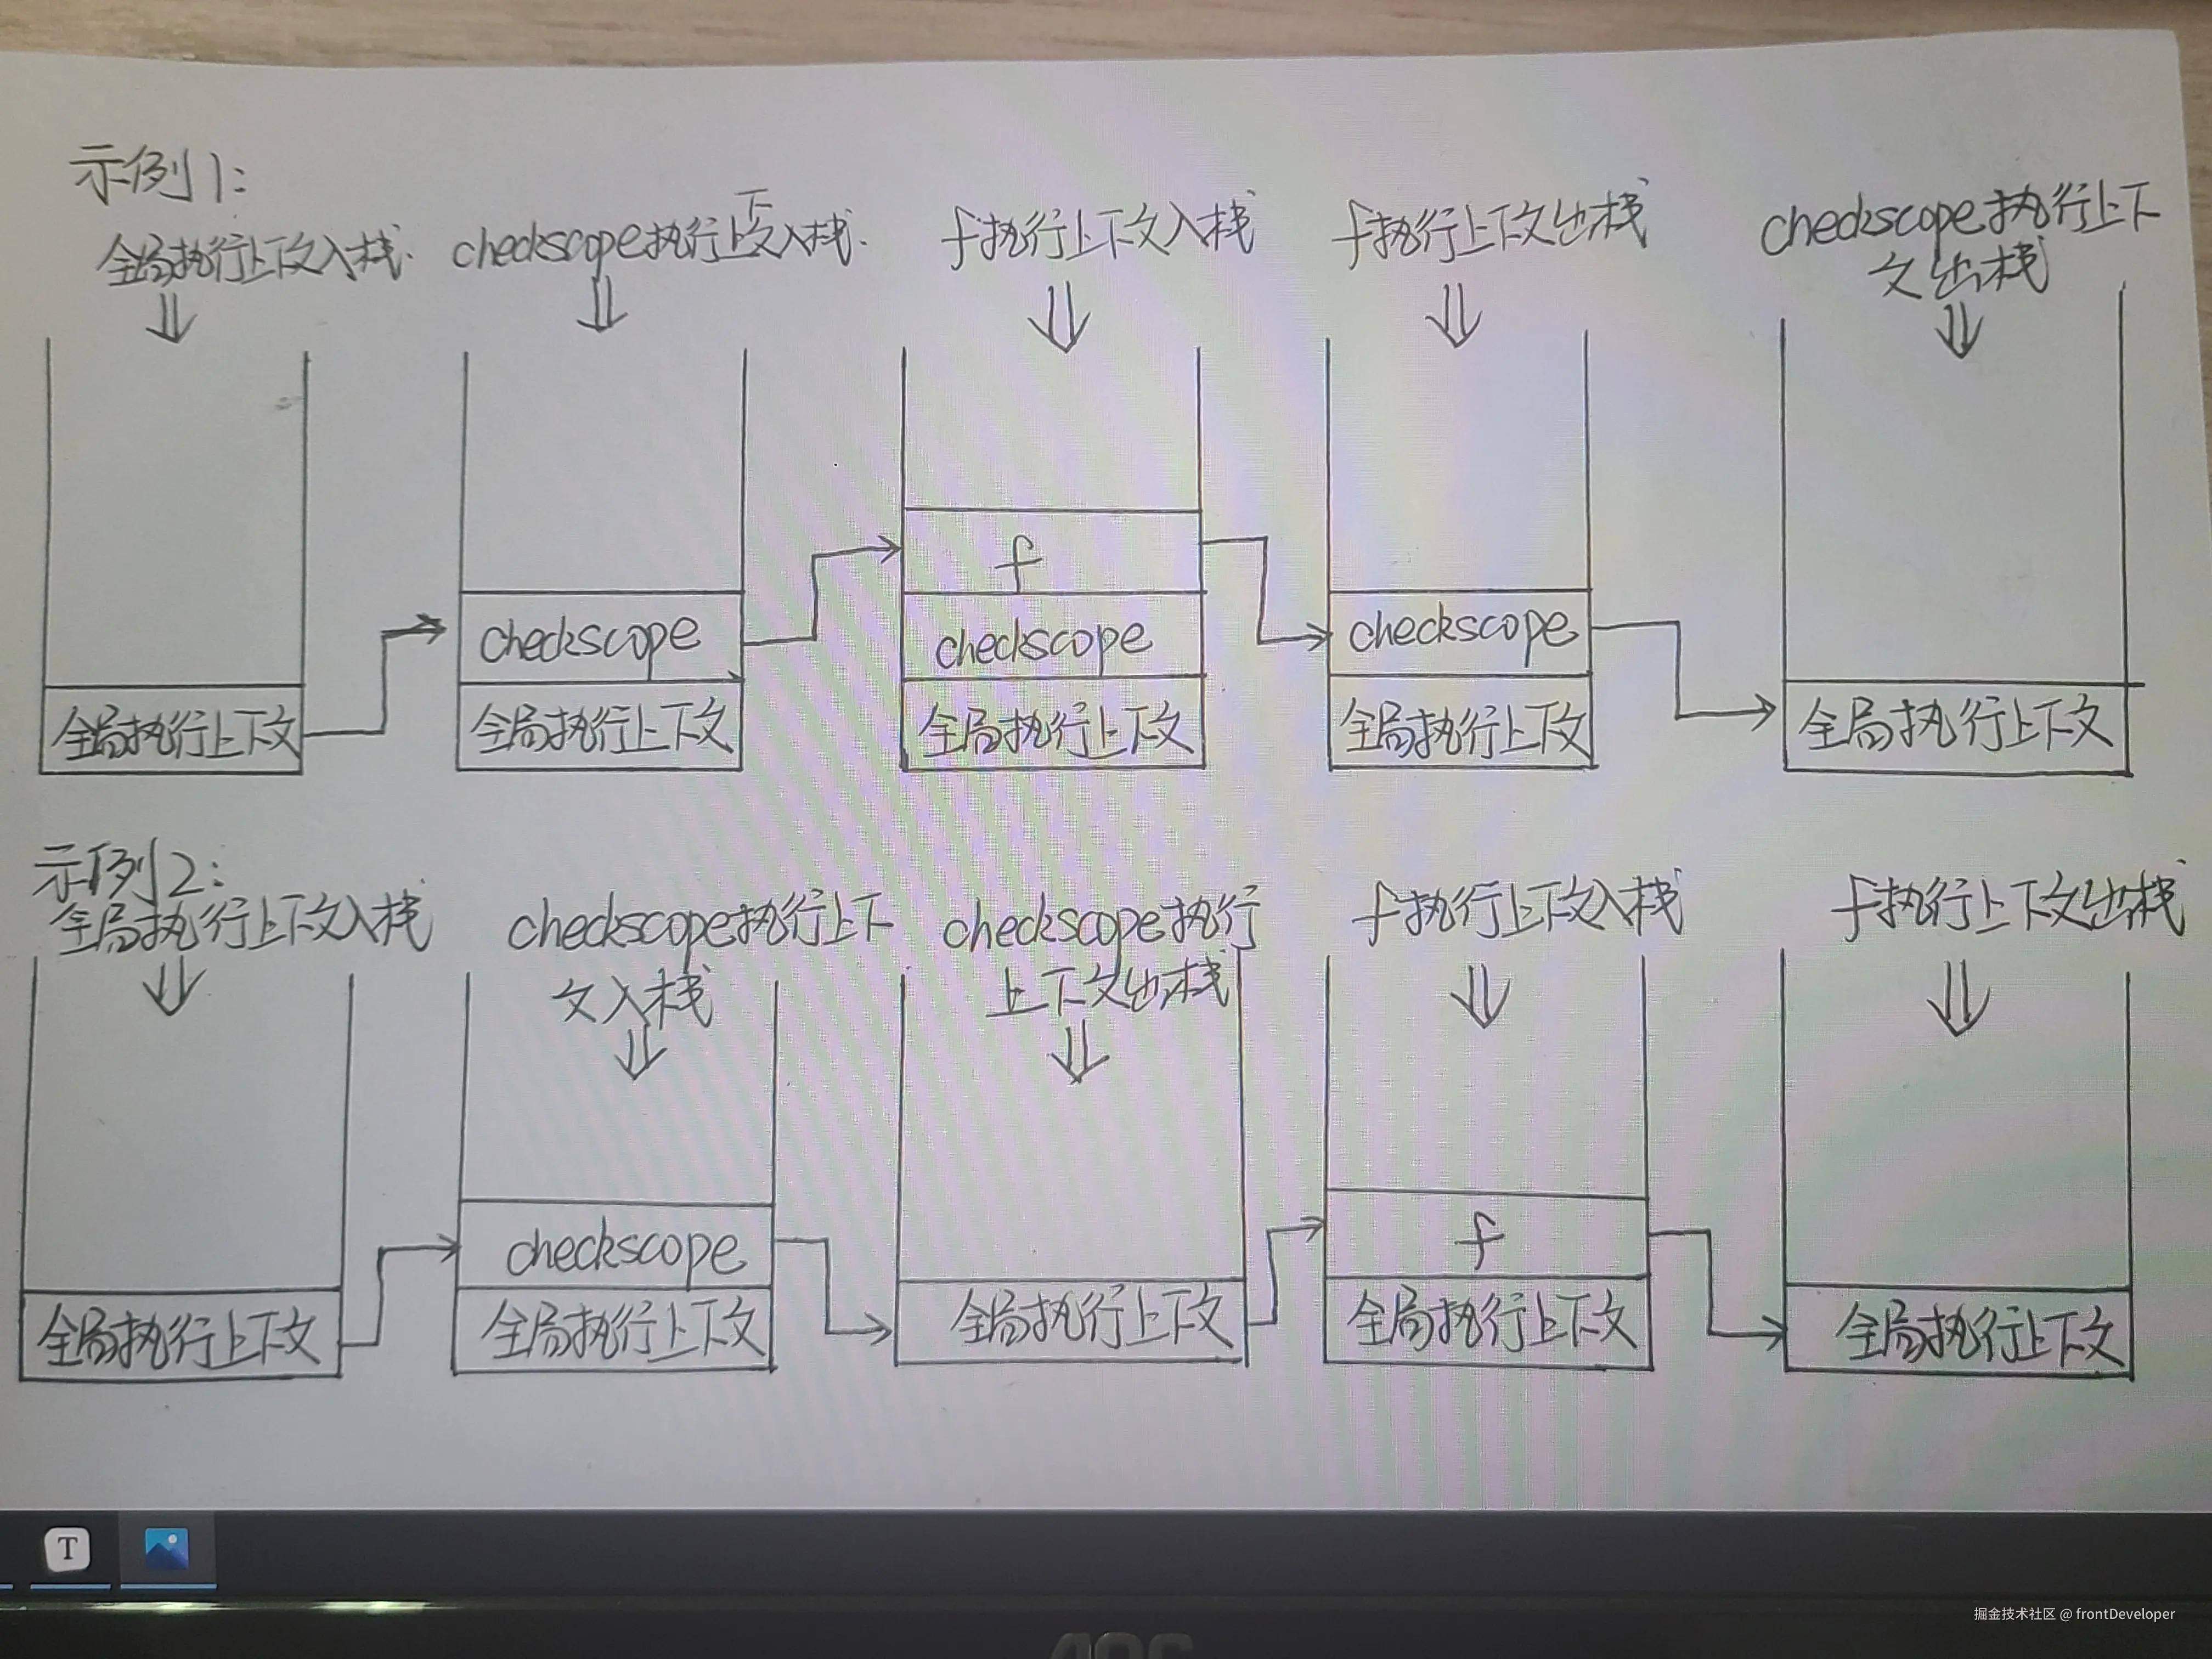 示例1:
全局执行上下文入栈.
checkscope执行上下文入栈.
f执行上下文入栈
f执行上下文出栈
checkscope执行上下
文出栈
全局执行上下文
checkscope
全局执行上下文
f
checkscope
全局执行上下文
checkscope
全局执行上下文
全局执行上下文
示例2:
全局执行上下文入栈
checkscope执行上下
文入栈
checkscope执行
上下文出栈
f执行上下文入栈
f执行上下文出栈
全局执行上下文
checkscope
全局执行上下文
全局执行上下文
f
全局执行上下文
全局执行上下文
T
掘金技术社区 @ frontDeveloper
AOC